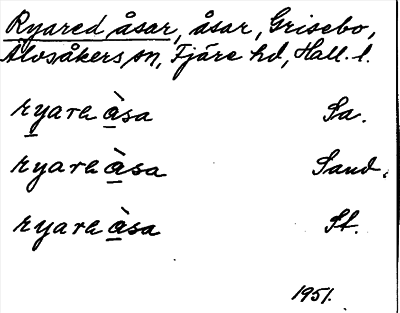 Ryared åsar, åsar, Grisebo,
Älvsåkers sn, Fjäre hd, Hall. l.
ryara àsa Sa.
ryara àsa Sand.
ryara àsa St.
1951.